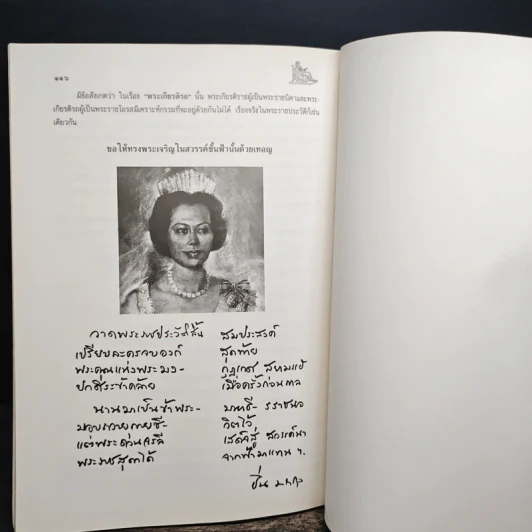 ๑๑๖
มีข้อสังเกตว่า ในเรื่อง "พระเกียรติรถ" นั้น พระเกียรติราชผู้เป็นพระราชบิดาและพระ-
เกียรติรถผู้เป็นพระราชโอรสมีเคราะห์กรรมที่จะอยู่ด้วยกันไม่ได้ เรื่องจริงในพระราชประวัติก็เช่น
เดียวกัน
ขอให้ทรงพระเจริญในสวรรค์ชั้นฟ้านั้นด้วยเทอญ
วาดพระราชประวัติสิ้น สมประสงค์
เปรียบละครองค์ สุดท้าย
พระคุณแห่งพระมง-
เมื่อครั้งก่อนกาล
นานมาเป็นข้าพระ-
มอบถวายกายชี- วิตไว้
แต่พระด่วนจรลี เสด็จสู่ สวรรค์นา
พระราชสุดาได้ จากฟ้ามาแทน ฯ